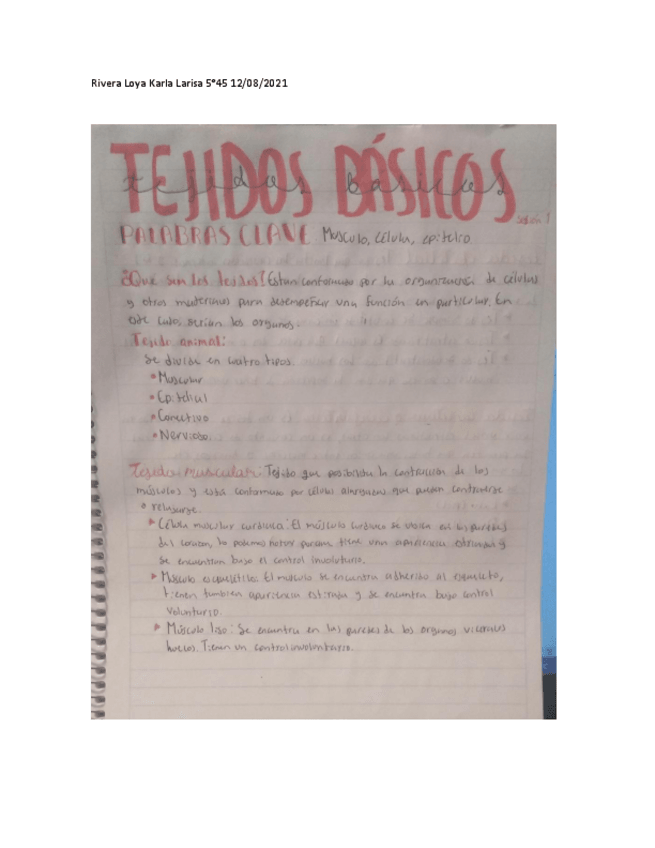 Rivera Loya Karla Larisa 5°45 12/08/2021
TEJIDOS BÁSICOS
tejidos básicos
Sesión 1
PALABRAS CLAVE Musculo, célula, epitelio
¿Qué son los tejidos? Estan conformados por la organización de células
y otros materiales para desempeñar una función en particular. En
este caso, serian los organos.
Tejido animal:
Se divide en cuatro tipos.
•Muscular
•Epitelial
•Conectivo
•Nervioso.
Tejido muscular: Tejido que posibilita la contracción de los
músculos y está conformado por células alargadas que pueden contraerse
o relajarse.
▸ Célula muscular cardiaca: El músculo cardiaco se ubica en las paredes
del corazon, lo podemos notar porque tiene una apariencia estriada y
se encuentran bajo el control involuntario.
▸ Músculo esquelético: El músculo se encuentra adherido al esqueleto,
tienen tambien apariencia estriada y se encuentra bajo control
voluntario.
▸ Músculo liso: Se encuentra en las paredes de los organos viscerales
huecos. Tienen un control involuntario.